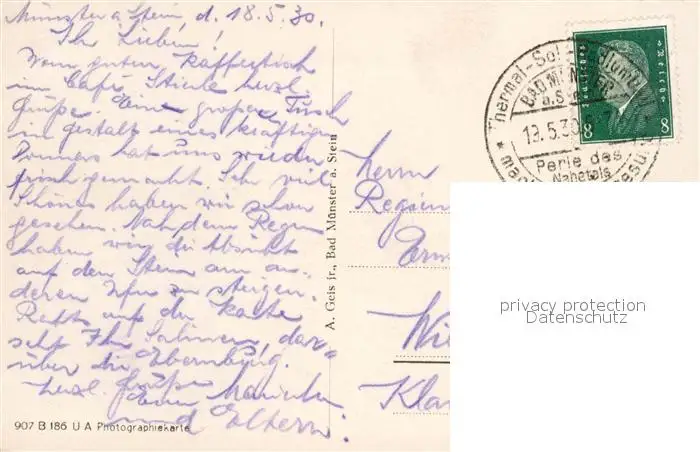 Münster a Stein, d. 18.5.30.
Ihr Lieben!
Vom guten Kaffeetisch
im Café Stierle herzl.
Grüße. Einen großen Tusch
in Gestalt eines kräftigen
Donners hat uns wieder
frisch gemacht. Sehr viel
Schönes haben wir schon
gesehen. Nach dem Regen
haben wir die Absicht
auf den Stein am an-
deren Ufer zu steigen.
Rechts auf der Karte
seht Ihr Salinen, dar-
über die Ebernburg.
Herzl. Grüße
Eure
und Eltern.
907 B 186 U A Photographiekarte
A. Geis jr., Bad Münster a. Stein
Herrn
Regier
Wi
Kla
Thermal-Sol
BAD MÜNSTER
a. St
18.5.30
Perle des
Nahetals
Deutsches Reich
8 8
privacy protection
Datenschutz